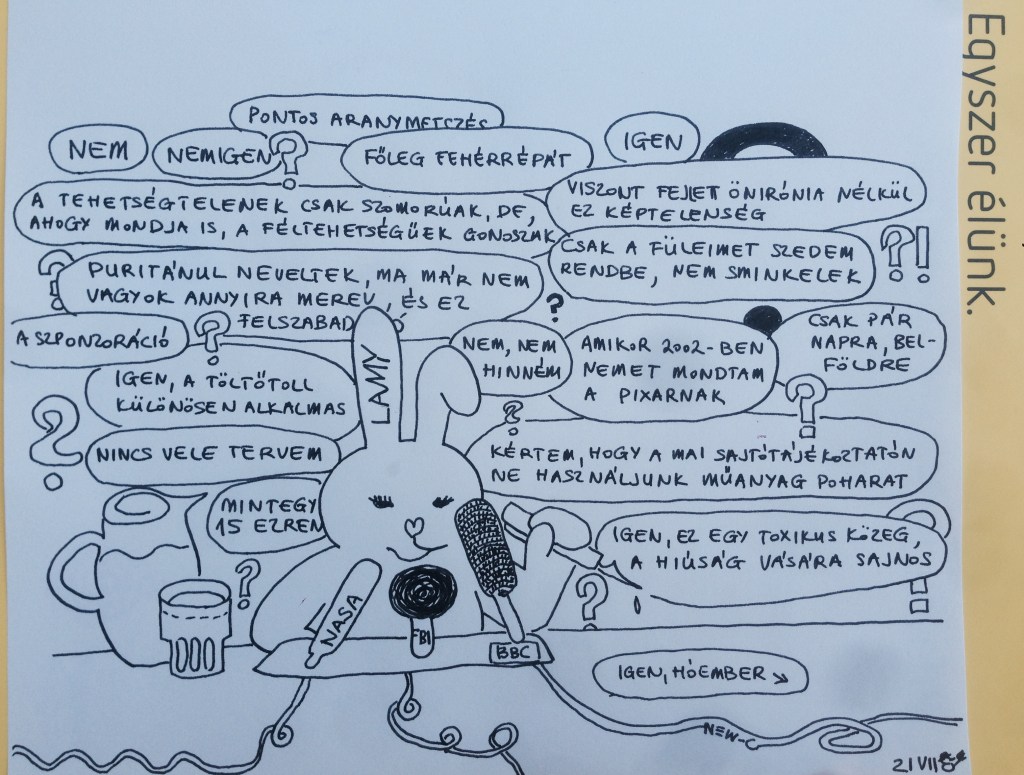 Egyszer élünk.
PONTOS ARANYMETSZÉS
NEM
NEMIGEN
?
FŐLEG FEHÉRRÉPÁT
IGEN
A TEHETSÉGTELENEK CSAK SZOMORÚAK, DE,
AHOGY MONDJA IS, A FÉLTEHETSÉGŰEK GONOSZAK
VISZONT FEJLET ÖNIRÓNIA NÉLKÜL
EZ KÉPTELENSÉG
CSAK A FÜLEIMET SZEDEM
RENDBE, NEM SMINKELEK
?!
?
PURITÁNUL NEVELTEK, MA MÁR NEM
VAGYOK ANNYIRA MEREV, ÉS EZ
FELSZABAD Ó
?
A SZPONZORÁCIÓ
?
NEM, NEM
HINNÉM
AMIKOR 2002-BEN
NEMET MONDTAM
A PIXARNAK
CSAK PÁR
NAPRA, BEL-
FÖLDRE
?
IGEN, A TÖLTŐTOLL
KÜLÖNÖSEN ALKALMAS
LAMY
?
?
NINCS VELE TERVEM
KÉRTEM, HOGY A MAI SAJTÓTÁJÉKOZTATÓN
NE HASZNÁLJUNK MŰANYAG POHARAT
MINTEGY
15 EZREN
IGEN, EZ EGY TOXIKUS KÖZEG,
A HIÚSÁG VÁSÁRA SAJNOS
?
?
?
NASA
FBI
BBC
IGEN, HÓEMBER ↘
NEW-C
21 VII